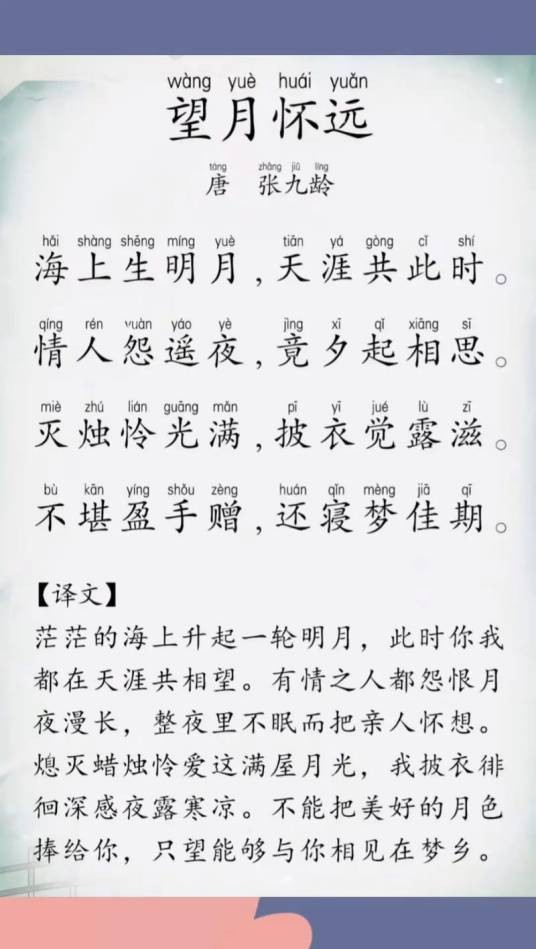 wàng yuè huái yuǎn
望月怀远
táng zhāng jiǔ líng
唐 张九龄
hǎi shàng shēng míng yuè tiān yá gòng cǐ shí
海上生明月,天涯共此时。
qíng rén yuàn yáo yè jìng xī qǐ xiāng sī
情人怨遥夜,竟夕起相思。
miè zhú lián guāng mǎn pī yī jué lù zī
灭烛怜光满,披衣觉露滋。
bù kān yíng shǒu zèng huán qǐn mèng jiā qī
不堪盈手赠,还寝梦佳期。
【译文】
茫茫的海上升起一轮明月，此时你我
都在天涯共相望。有情之人都怨恨月
夜漫长，整夜里不眠而把亲人怀想。
熄灭蜡烛怜爱这满屋月光，我披衣徘
徊深感夜露寒凉。不能把美好的月色
捧给你，只望能够与你相见在梦乡。